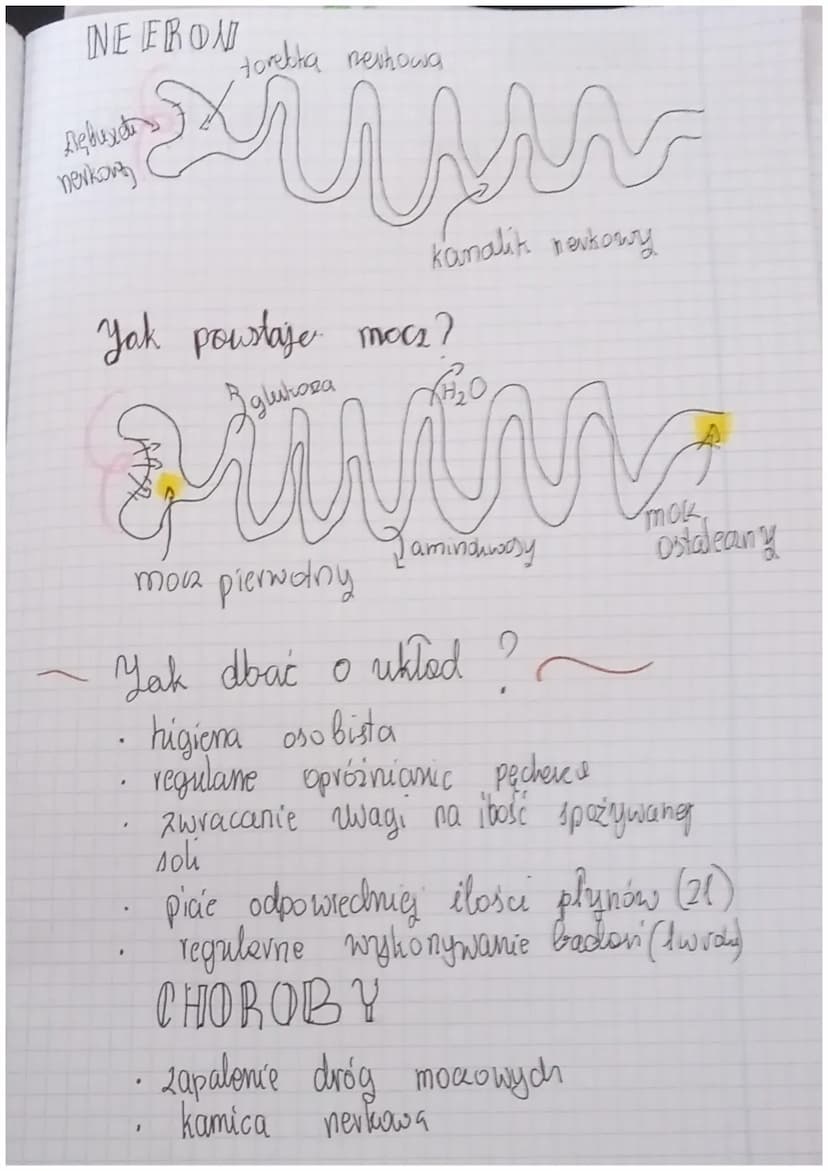 NEFRON
torebka nerkowa
kłębuszek
nerkowy
kanalik nerkowy
Jak powstaje mocz?
glukoza
H₂O
aminokwasy
mocz
ostateczny
mocz pierwotny
Jak dbać o układ ?
• higiena osobista
• regularne opróżnianie pęcherza
• zwracanie uwagi na ilość spożywanej
soli
• picie odpowiedniej ilości płynów (2l)
• regularne wykonywanie badań (1 w roku)
CHOROBY
• zapalenie dróg moczowych
• kamica nerkowa